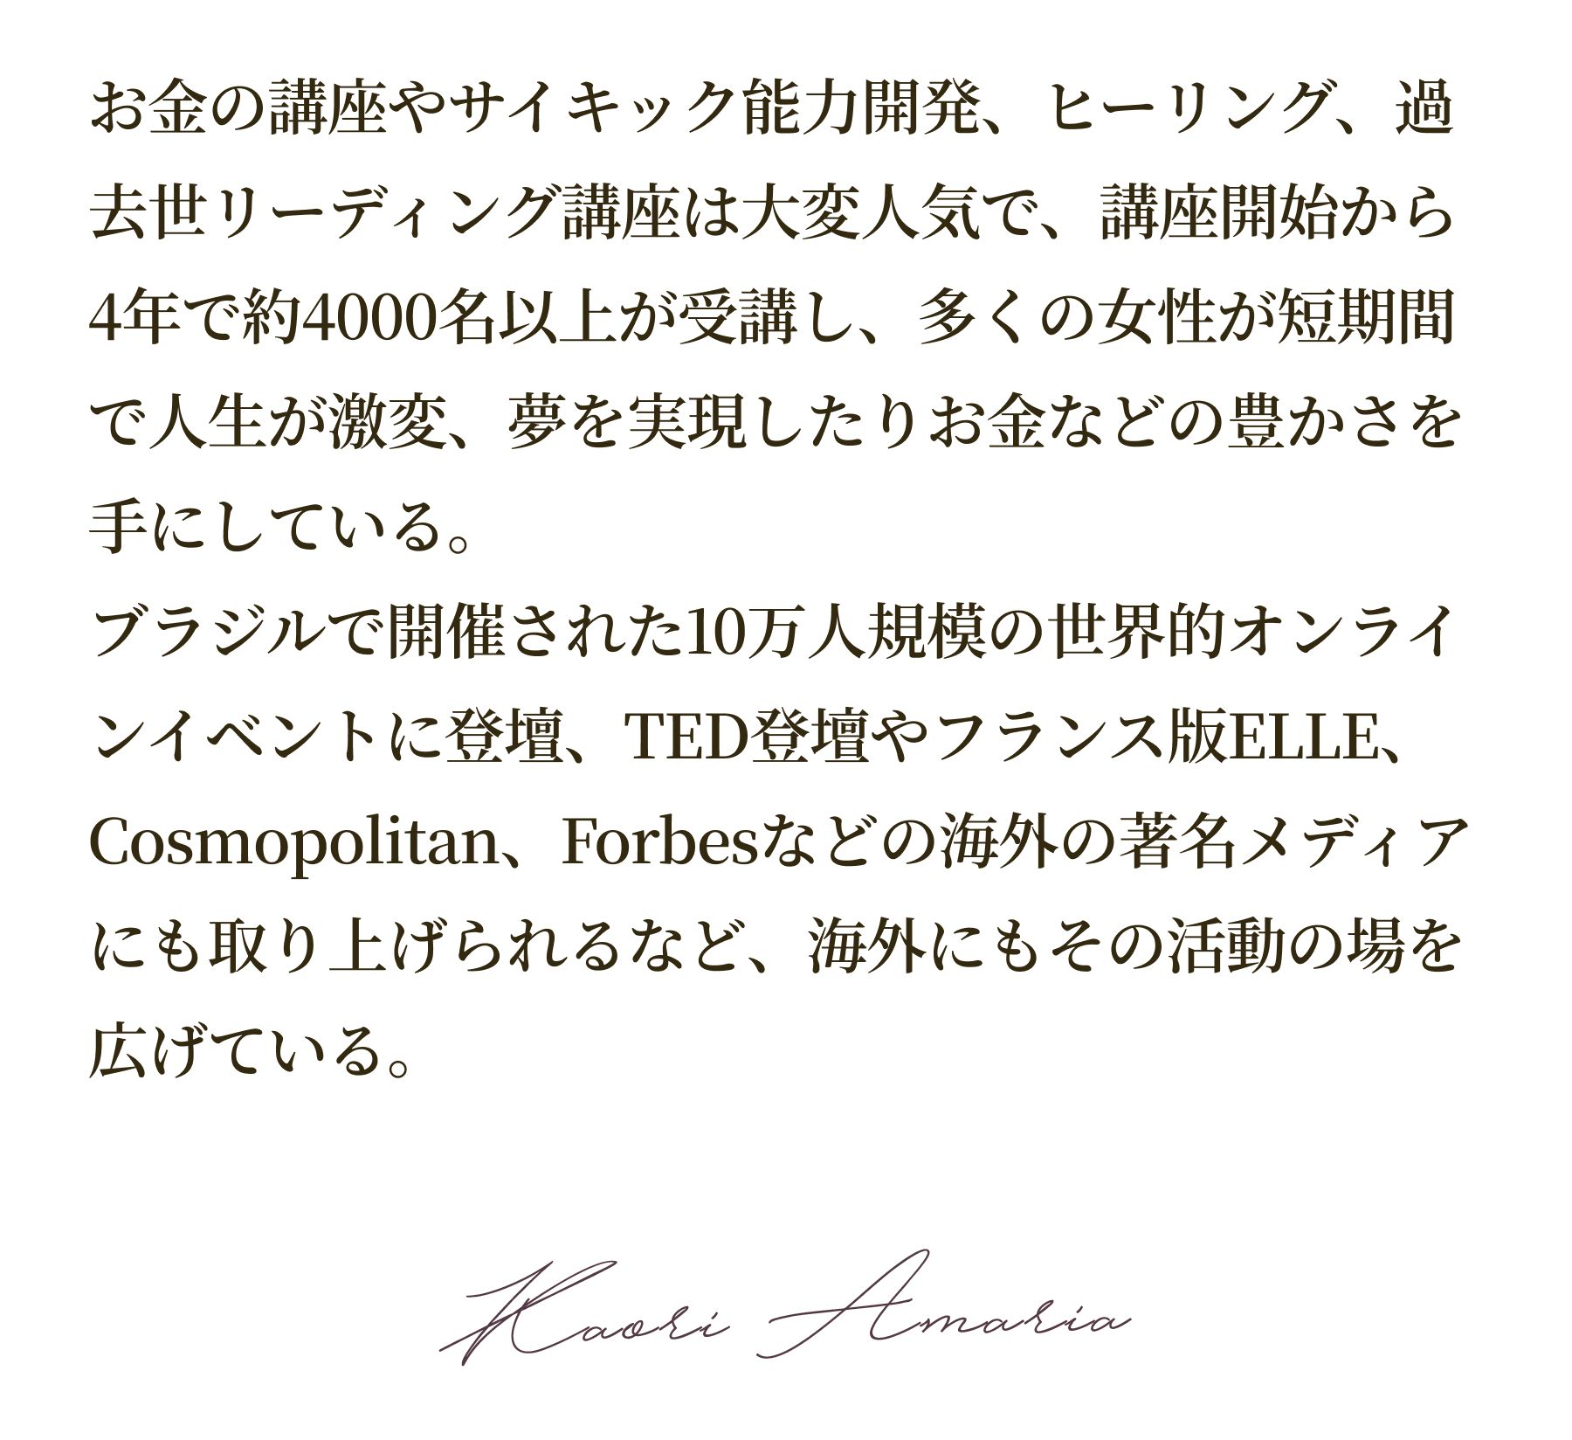 お金の講座やサイキック能力開発、ヒーリング、過
去世リーディング講座は大変人気で、講座開始から
4年で約4000名以上が受講し、多くの女性が短期間
で人生が激変、夢を実現したりお金などの豊かさを
手にしている。
ブラジルで開催された10万人規模の世界的オンライ
ンイベントに登壇、TED登壇やフランス版ELLE、
Cosmopolitan、Forbesなどの海外の著名メディア
にも取り上げられるなど、海外にもその活動の場を
広げている。
Kaori Amaria